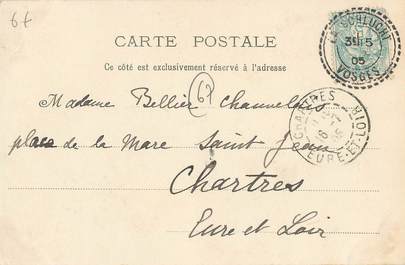 6f
CARTE POSTALE
Ce côté est exclusivement réservé à l'adresse
LA SCHLUCHT
05
VOSGES
62
Madame Bellier
place de la Mare Saint Jean
CHARTRES
EURE-ET-LOIR
Chartres
Eure et Loir